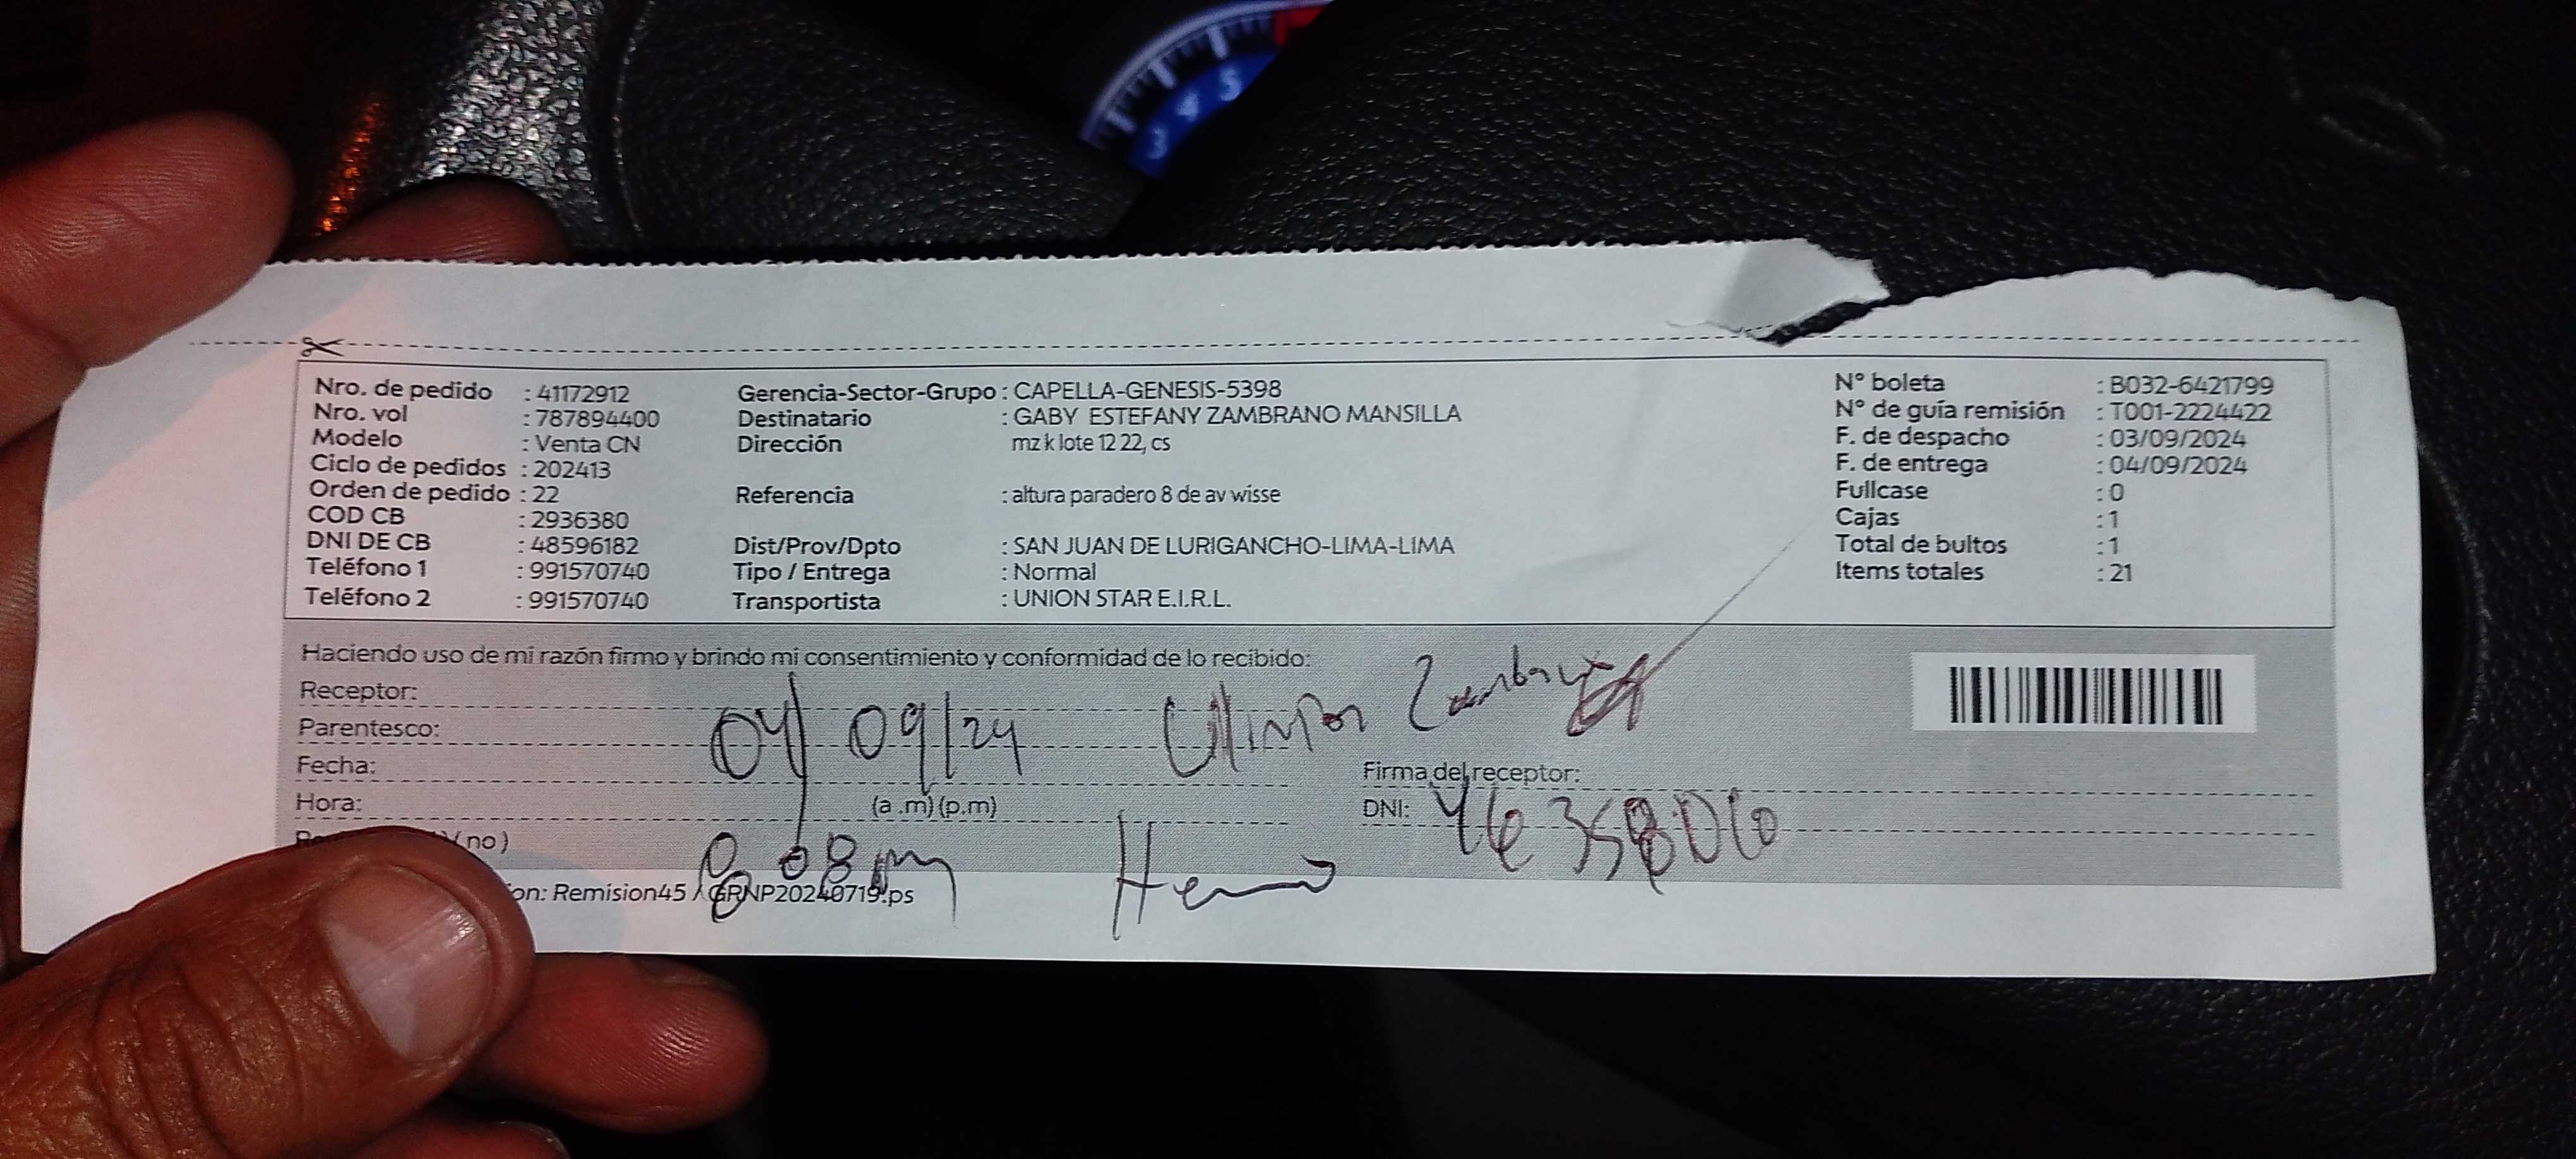 Nro. de pedido : 41172912
Nro. vol : 787894400
Modelo : Venta CN
Ciclo de pedidos : 202413
Orden de pedido : 22
COD CB : 2936380
DNI DE CB : 48596182
Teléfono 1 : 991570740
Teléfono 2 : 991570740
Gerencia-Sector-Grupo : CAPELLA-GENESIS-5398
Destinatario : GABY ESTEFANY ZAMBRANO MANSILLA
Dirección mz k lote 12 22, cs
Referencia : altura paradero 8 de av wisse
Dist/Prov/Dpto : SAN JUAN DE LURIGANCHO-LIMA-LIMA
Tipo / Entrega : Normal
Transportista : UNION STAR E.I.R.L.
N° boleta : B032-6421799
N° de guía remisión : T001-2224422
F. de despacho : 03/09/2024
F. de entrega : 04/09/2024
Fullcase : 0
Cajas : 1
Total de bultos : 1
Items totales : 21
Haciendo uso de mi razón firmo y brindo mi consentimiento y conformidad de lo recibido:
Receptor:
Parentesco:
04/09/24
Fecha:
Firma del receptor:
Hora: (a .m) (p.m)
DNI:
no )
8:08 pm
on: Remision45 / GRNP20240719.ps
3 4 5